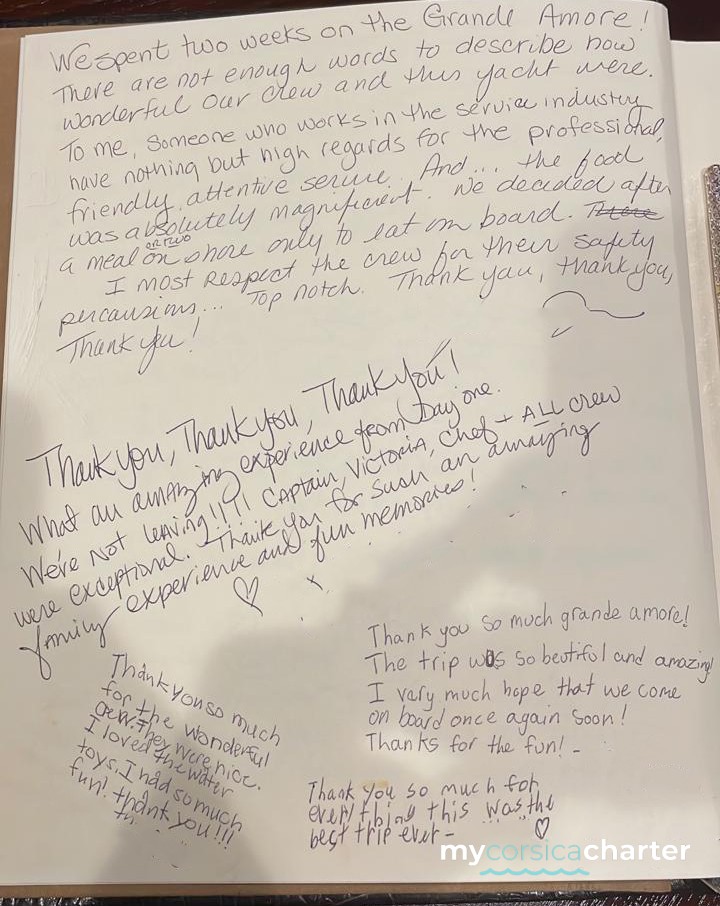 We spent two weeks on the Grande Amore!
There are not enough words to describe how
wonderful our crew and this yacht were.
To me, someone who works in the service industry
have nothing but high regards for the professional,
friendly, attentive service. And... the food
was absolutely magnificent. We decided after
a meal on shore only to eat on board. There
or two
I most respect the crew for their safety
percausions... Top notch. Thank you, thank you,
Thank you!
Thank you, Thank you, Thank you!
What an amazing experience from Day one.
We're NOT leaving!!!! Captain, Victoria, Chef + ALL crew
were exceptional. Thank you for such an amazing
family experience and fun memories!
Thank you so much
for the wonderful
crew. They were nice.
I loved the water
toys. I had so much
fun! thank you!!!
Thank you so much grande amore!
The trip was so beutiful and amazing!
I vary much hope that we come
on board once again soon!
Thanks for the fun! -
Thank you so much for
everything this was the
best trip ever -
mycorsicacharter